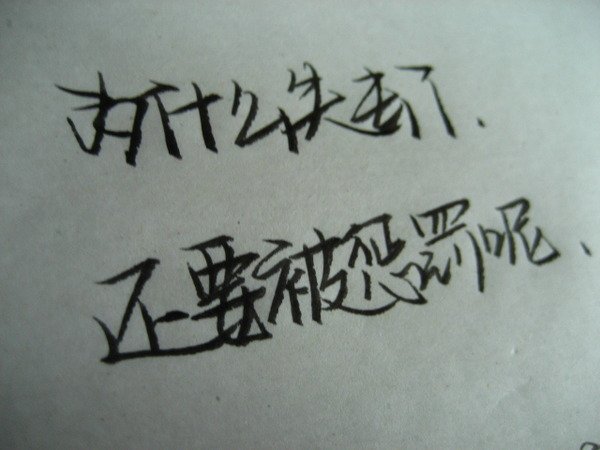 为什么失去了、
还要被惩罚呢、